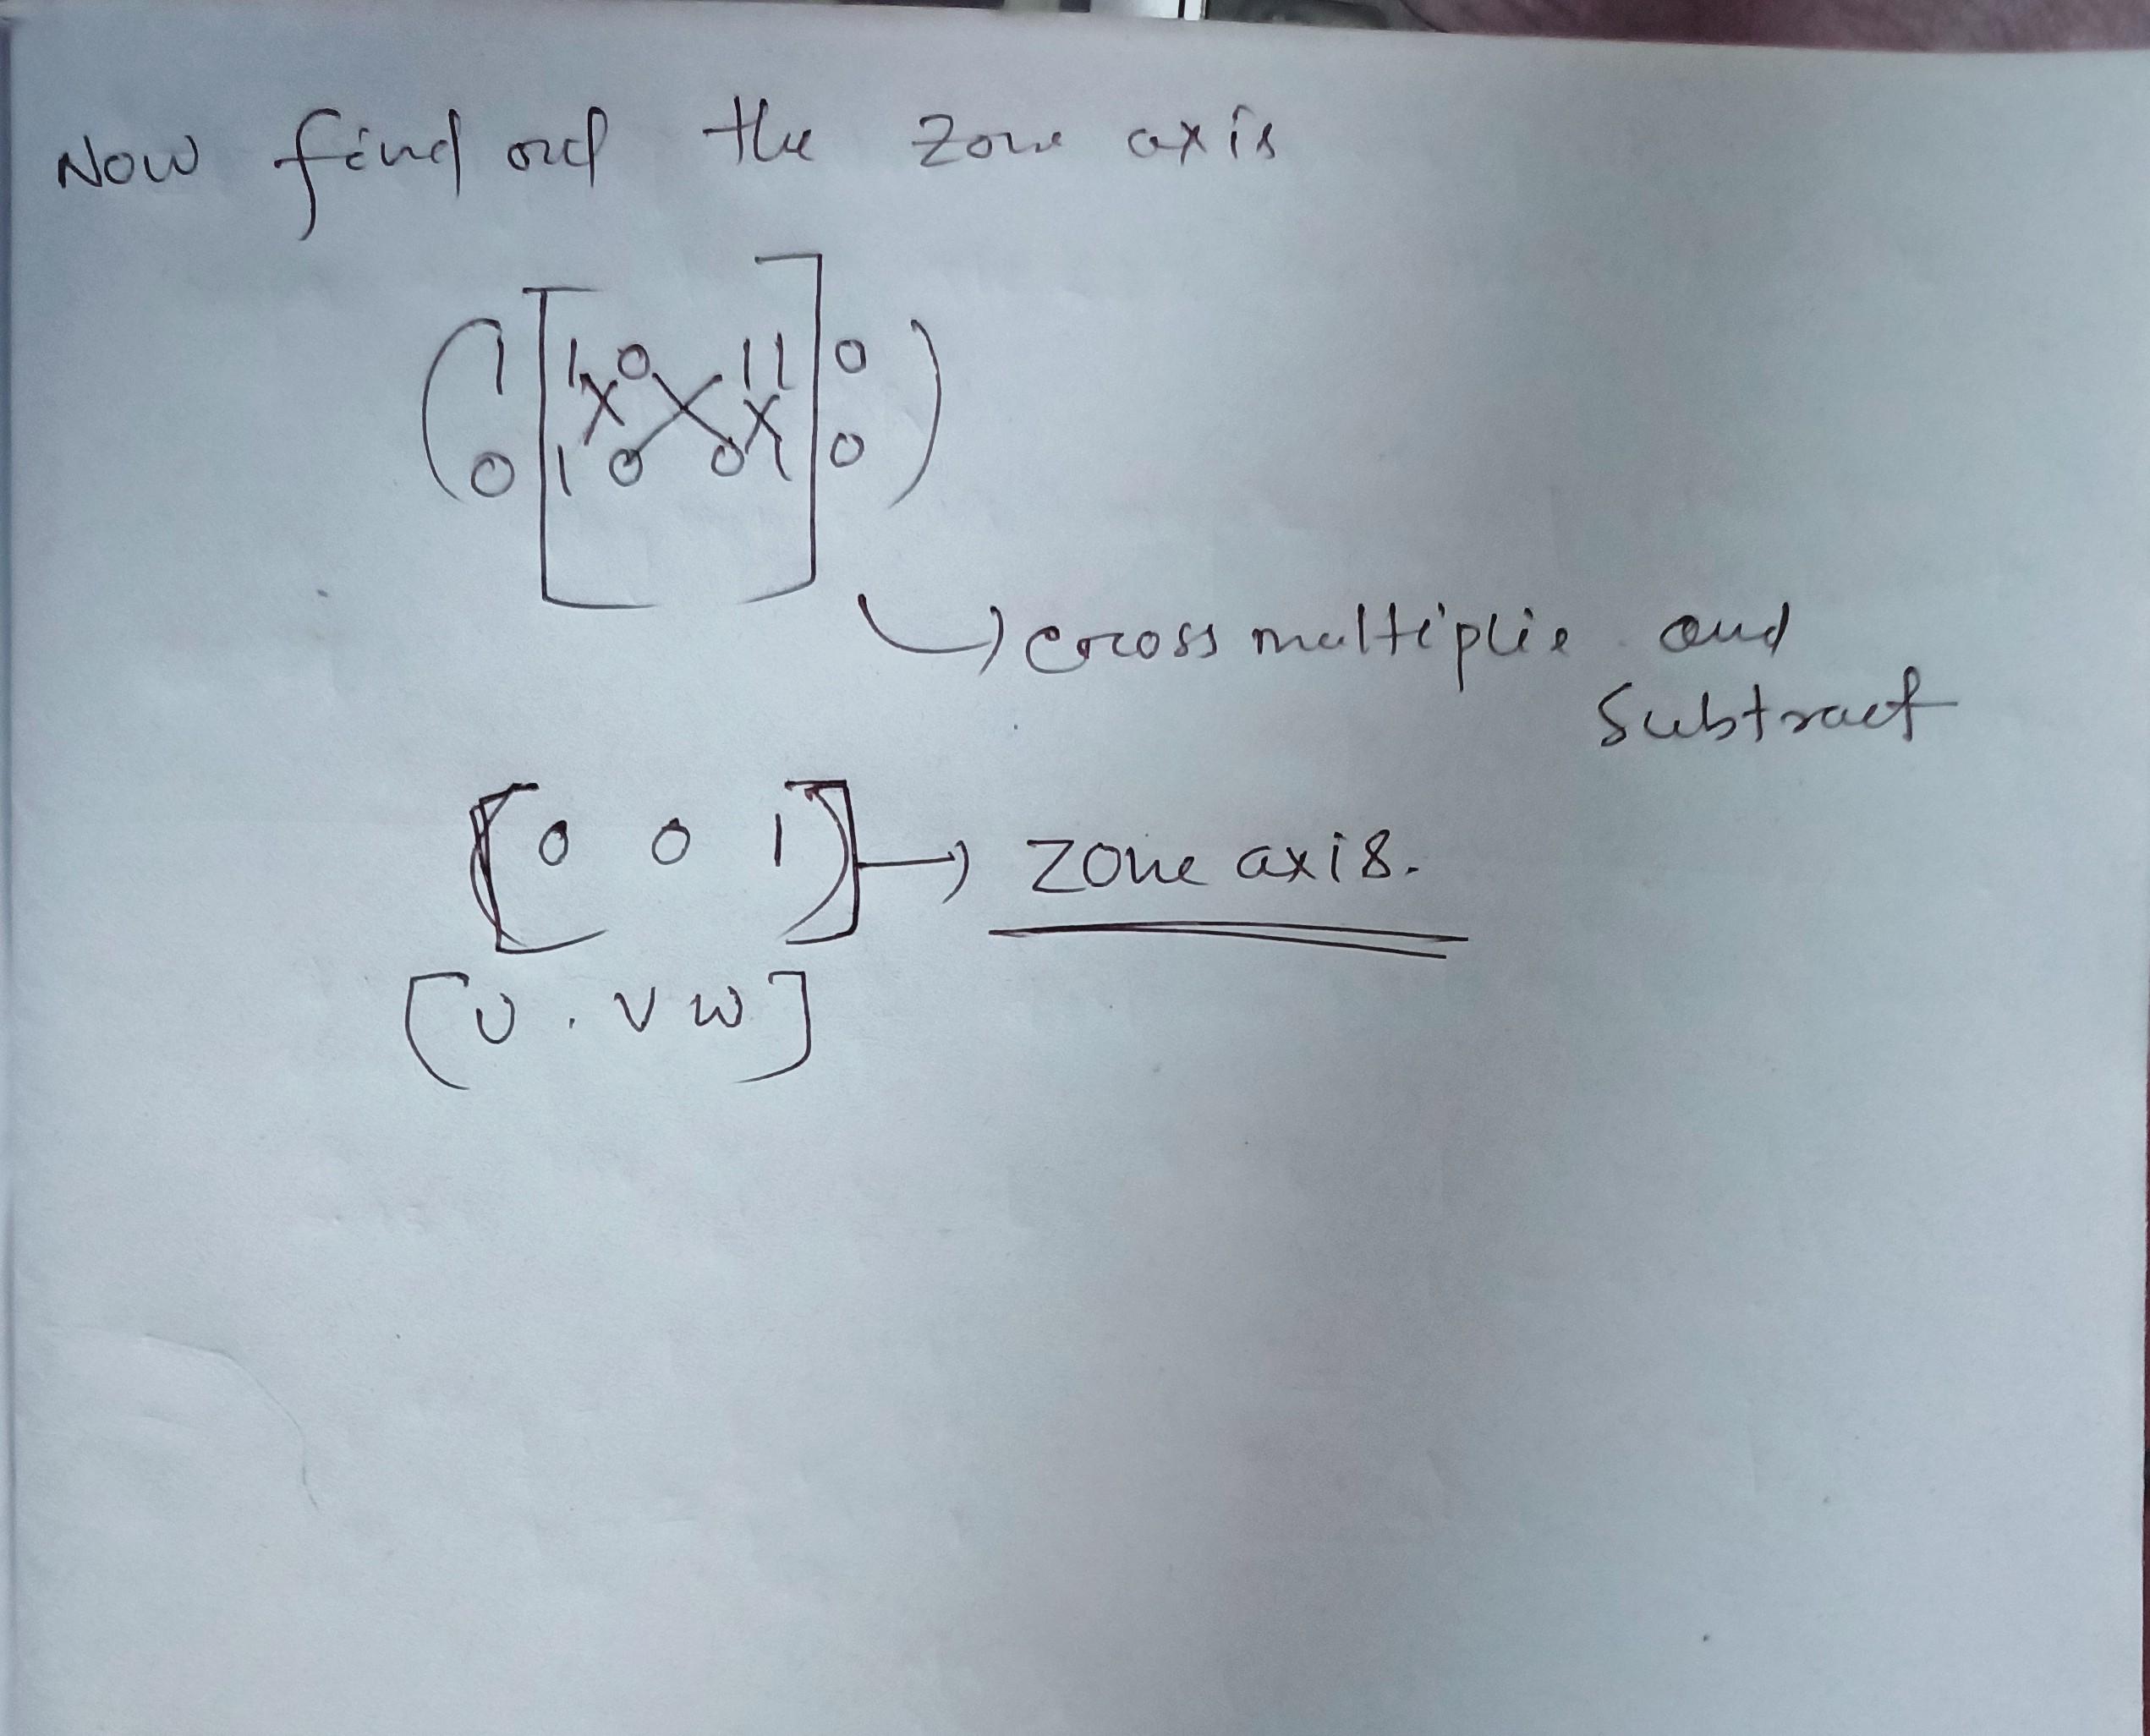 Now find out the zone axis
( 1 [ 1 0 1 1 ] 0 )
0 1 0 0 1 0
cross multiplie and
Subtract
[ 0 0 1 ] → zone axis.
[ U . V W ]